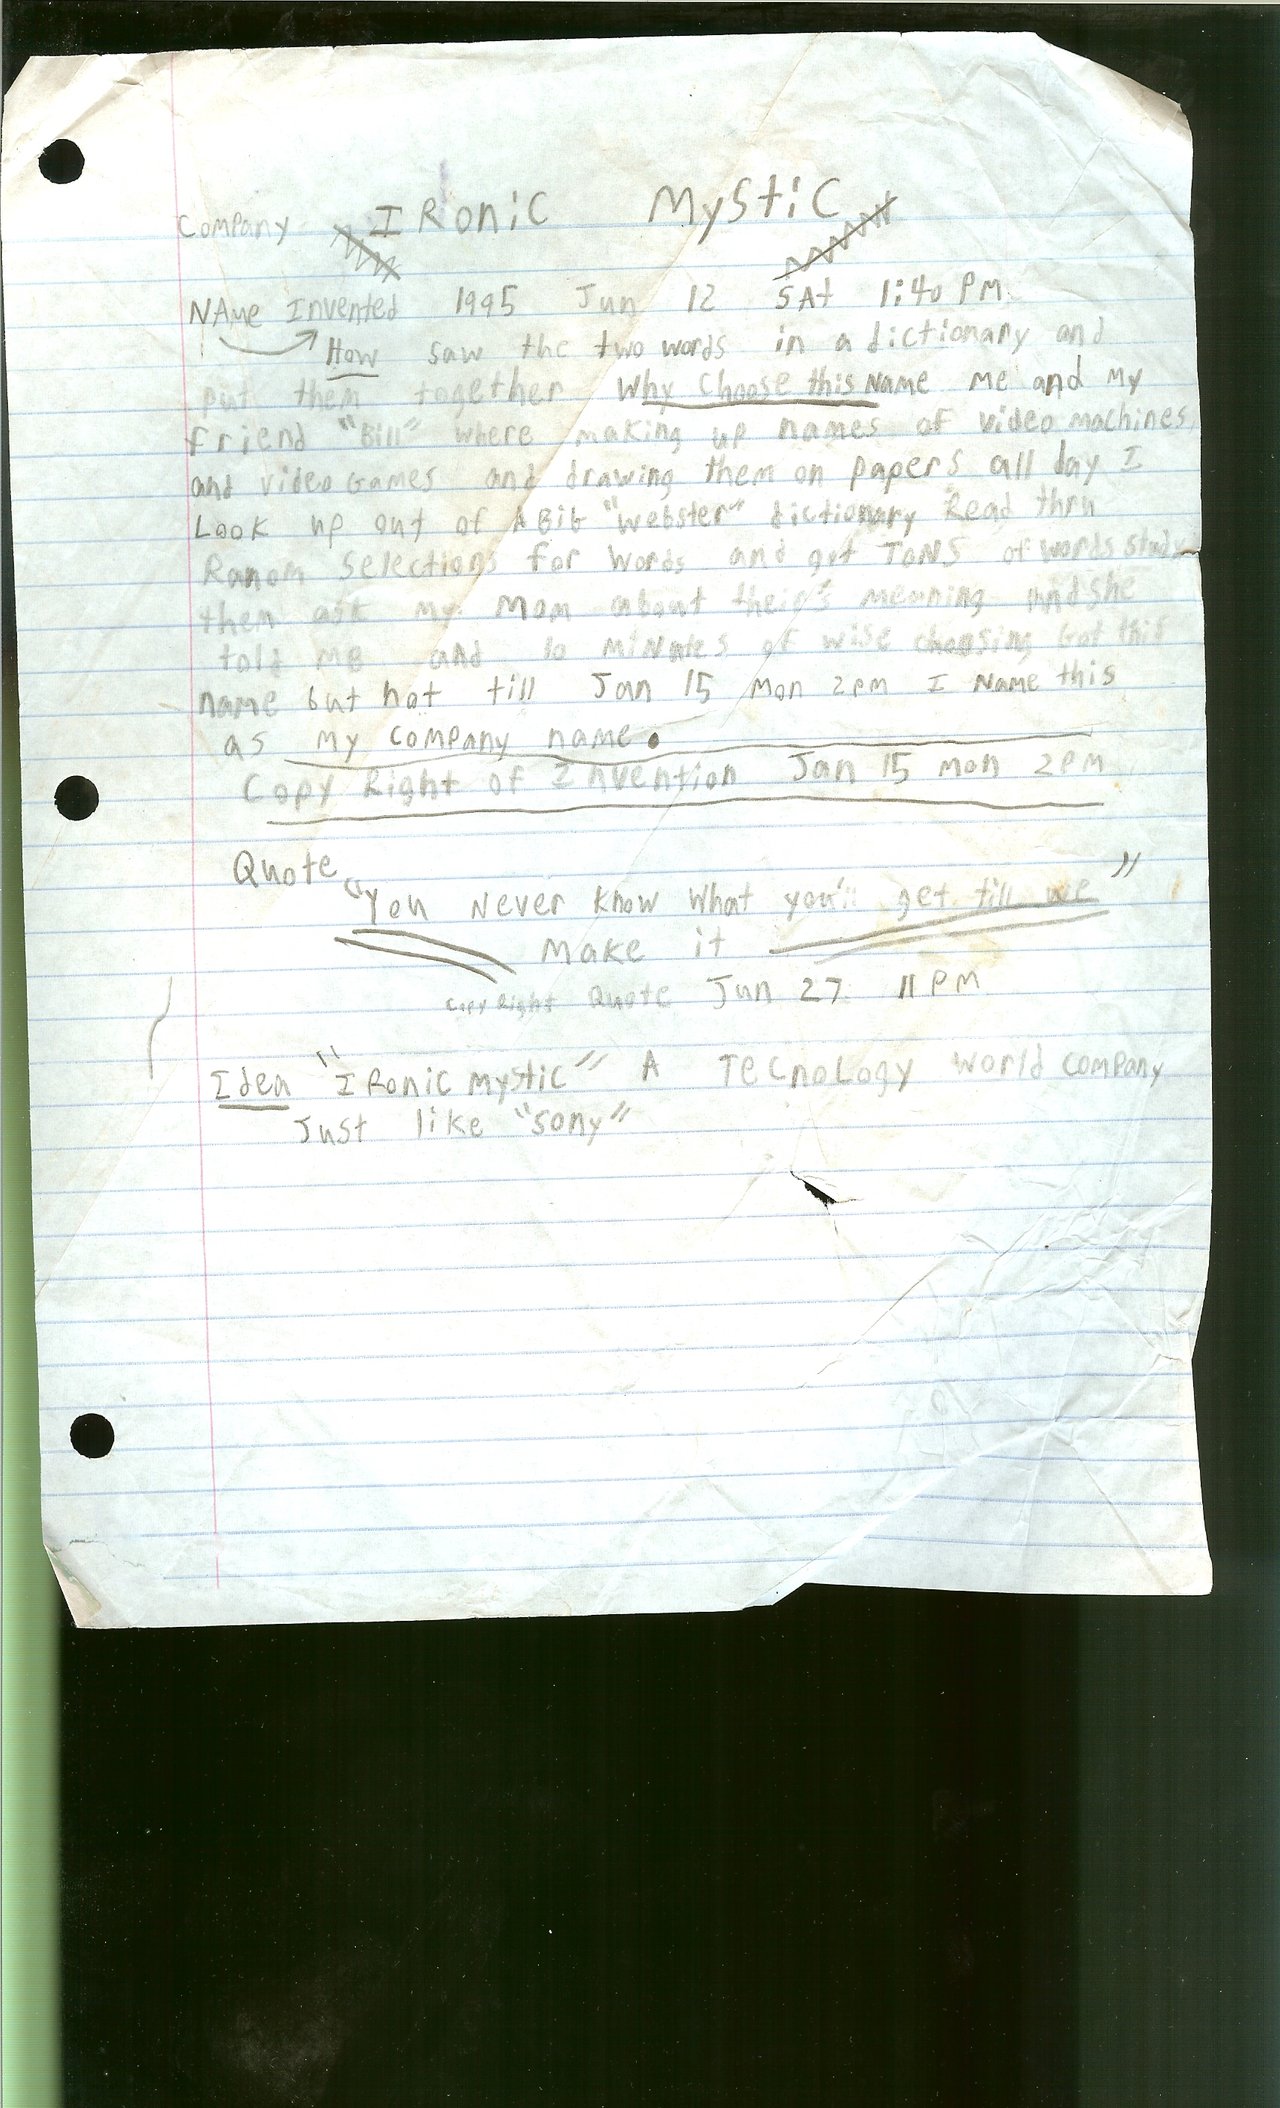 Company IRonic Mystic
NAme Invented 1995 Jun 12 SAt 1:40 PM
How saw the two words in a dictionary and
put them together Why Choose this Name me and my
friend "Bill" where making up names of video machines,
and video Games and drawing them on papers all day I
Look up out of A BiG "Webster" dictionary Read thru
Ranom Selections for words and got TONS of words study
then ask my Mom about their's meaning and she
told me and 10 minates of wise choosing Got this
name but not till Jan 15 mon 2pm I Name this
as my company name.
Copy Right of Invention Jan 15 mon 2PM
Quote
"You Never Know What you'll get till we"
Make it
Copy Right Quote Jun 27 11PM
Idea "IRonic mystic" A TecnoLogy world company
Just like "sony"